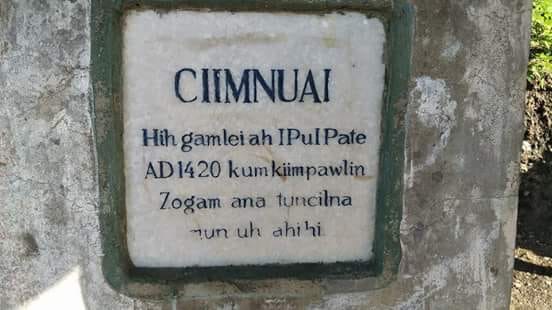 CIIMNUAI
Hih gamlei ah I Pu I Pate
AD 1420 kum kiimpawlin
Zogam ana tuncilna
mun uh ahi hi